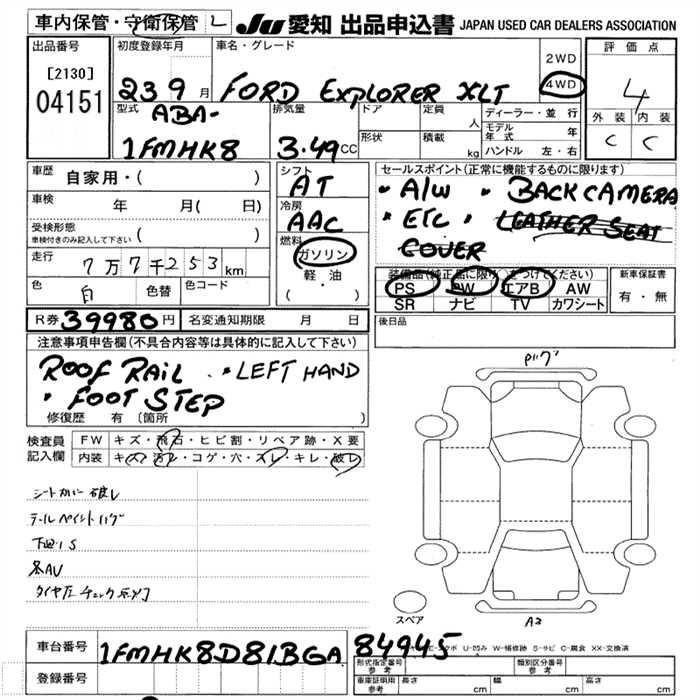 車内保管・守衛保管 L JU 愛知 出品申込書 JAPAN USED CAR DEALERS ASSOCIATION
出品番号 初度登録年月 車名・グレード 2WD 評価点
[2130] 23 9月 FORD EXPLORER XLT 4WD 4
04151 型式 ABA- 排気量 ドア 定員 人 ディーラー・並行 外装 内装
1FMHK8 3.49CC 形状 積載 kg モデル年式 年 C C
ハンドル 左・右
車歴 自家用・( ) シフト AT セールスポイント(正常に機能するものに限ります)
車検 年 月( 日) 冷房 AAC ・A/W ・BACK CAMERA
受検形態 ・ETC ・LEATHER SEAT
車検付きのみ記入して下さい ( ) 燃料 COVER
走行 7万7千253km ガソリン 装備品(純正品に限り をつけてください) 新車保証書
色 白 色替 色コード 軽・油 PS PW エアB AW 有・無
( ・ ) SR ナビ TV カワシート
R券 39980円 名変通知期限 月 日 後日品
注意事項申告欄(不具合内容等は具体的に記入して下さい)
ROOF RAIL ・LEFT HAND
・FOOT STEP
修復歴 有 (箇所 )
検査員 FW キズ・飛石・ヒビ割・リペア跡・X要
記入欄 内装 キズ・汚レ・コゲ・穴・スレ・キレ・破レ
シートカバー破レ
下廻りS
タイヤ圧チェック点灯
スペア A3
車台番号 1FMHK8D81BGA84945
U-凹み W-補修跡 S-サビ C-腐食 XX-交換済
登録番号 形式指定番号 参考 類別区分番号 参考
車庫証明用 参考 長さ cm 幅 cm 高さ cm